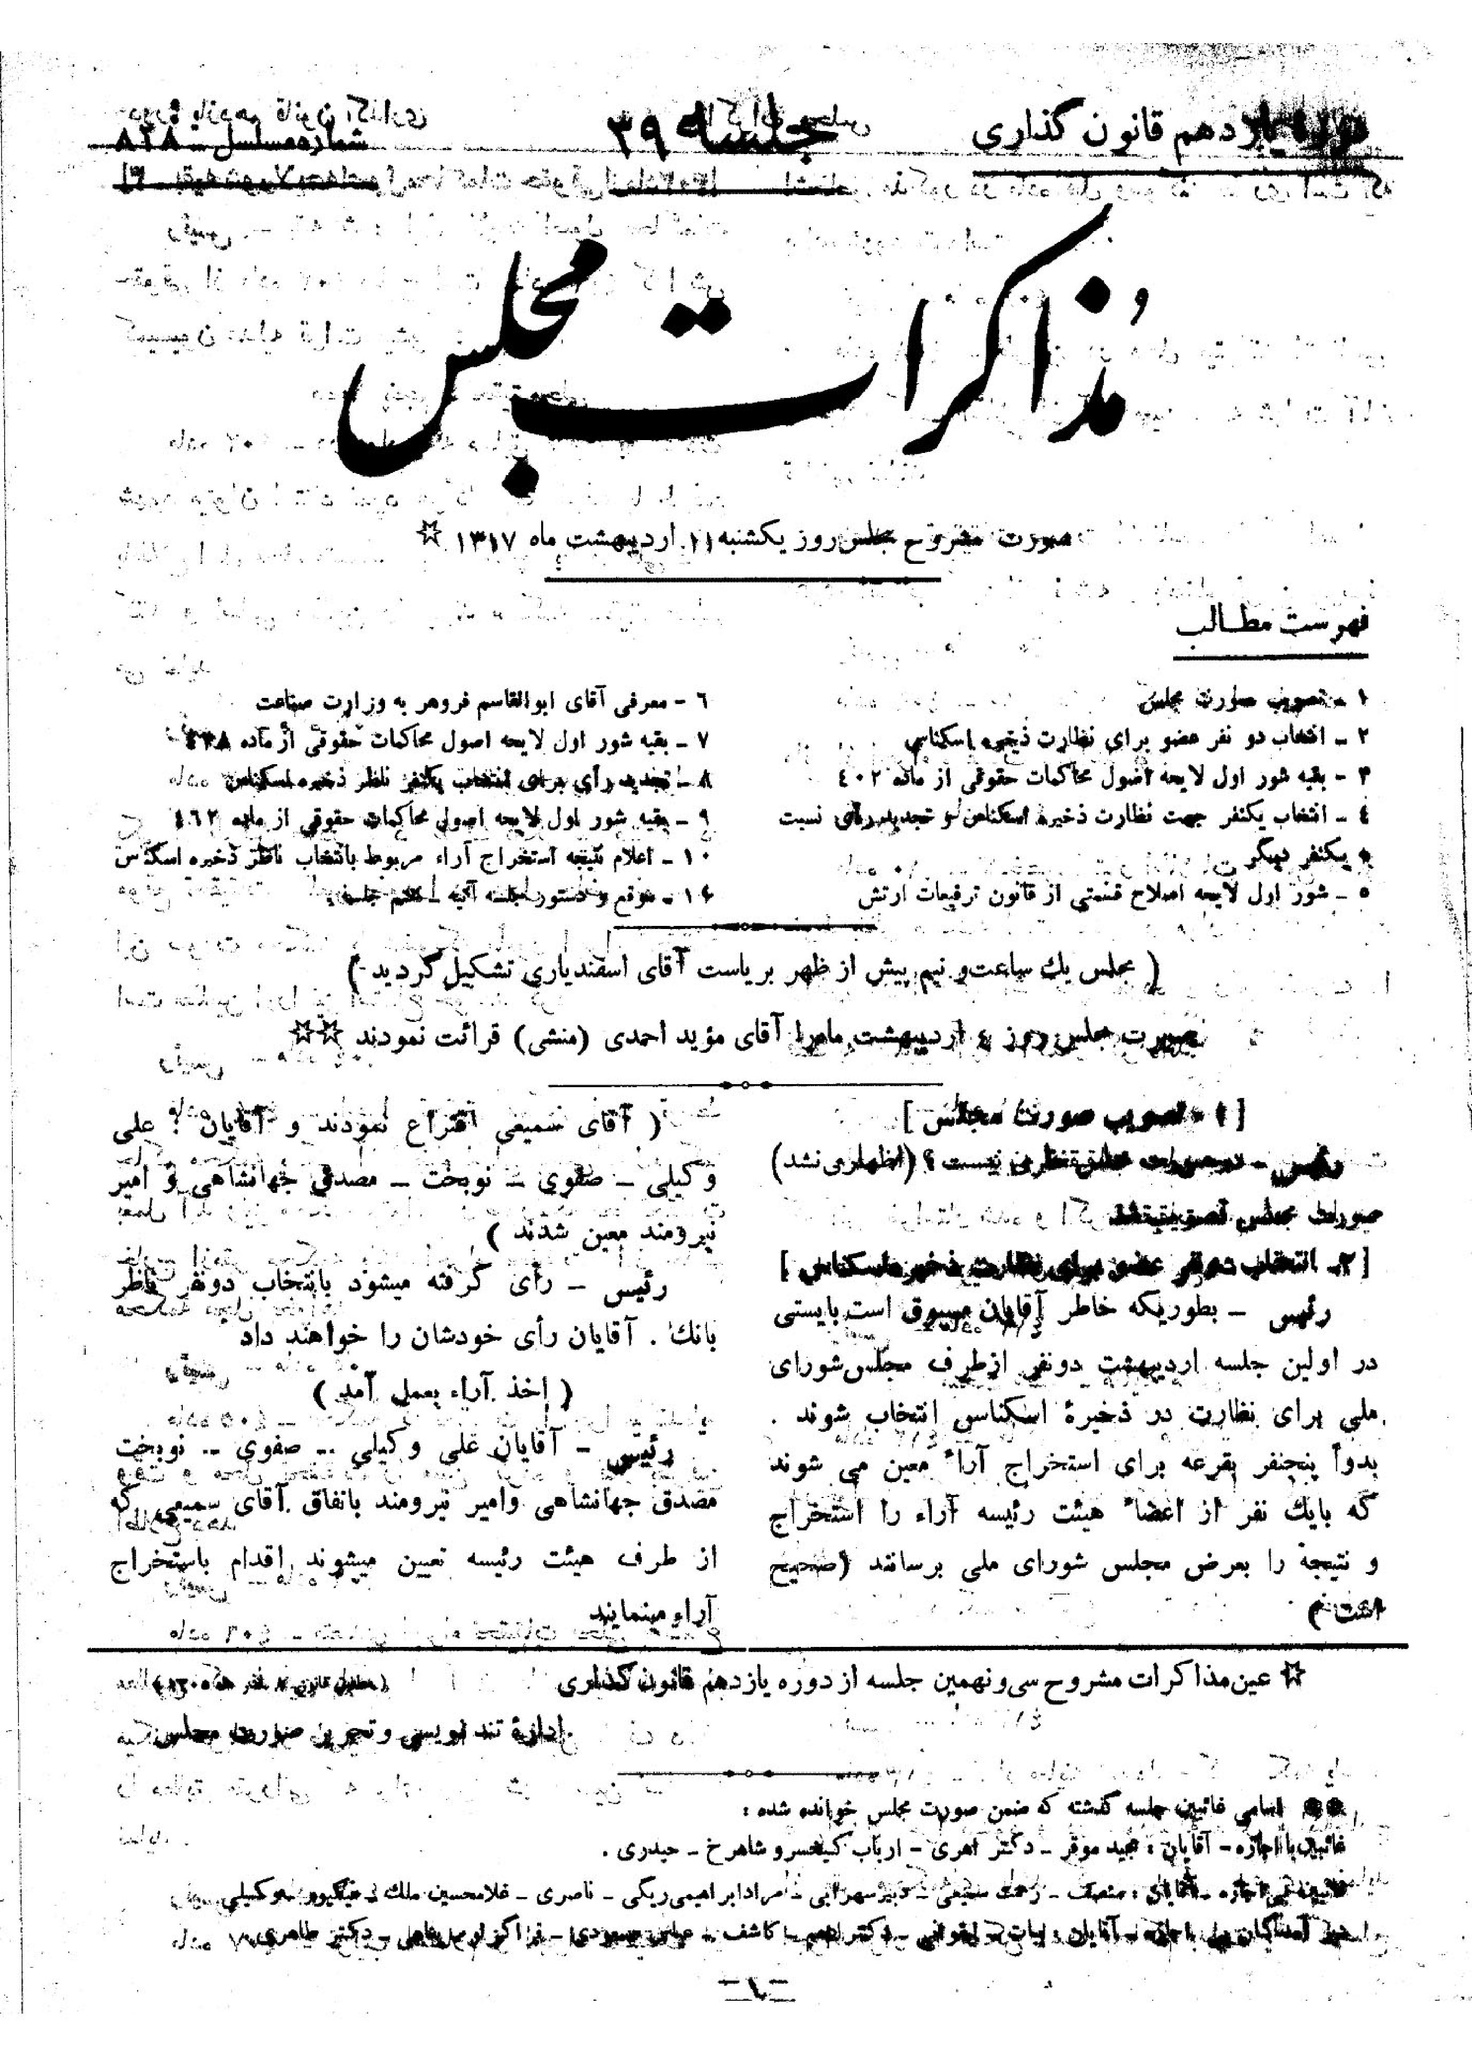 دوره یازدهم قانون گذاری
جلسه ۳۹
شماره مسلسل - ۸۲۸
مُذاکرات مجلس
صورت مشروح مجلس روز یکشنبه ۱۱ اردیبهشت ماه ۱۳۱۷ ☆
فهرست مطالب
۱ - تصویب صورت مجلس
۲ - انتخاب دو نفر عضو برای نظارت ذخیره اسکناس
۳ - بقیه شور اول لایحه اصول محاکمات حقوقی از ماده ٤٠٢
٤ - انتخاب یکنفر جهت نظارت ذخیره اسکناس و تجدید رأی نسبت
یکنفر دیگر
۵ - شور اول لایحه اصلاح قسمتی از قانون ترفیعات ارتش
٦ - معرفی آقای ابوالقاسم فروهر به وزارت صناعت
۷ - بقیه شور اول لایحه اصول محاکمات حقوقی از ماده
۸ - تجدید رأی برای انتخاب یکنفر ناظر ذخیره اسکناس
۹ - بقیه شور اول لایحه اصول محاکمات حقوقی از ماده
۱۰ - اعلام نتیجه استخراج آراء مربوط بانتخاب ناظر ذخیره اسکناس
موقع و دستور جلسه آتیه - ختم جلسه
( مجلس یك ساعت و نیم پیش از ظهر بریاست آقای اسفندیاری تشکیل گردید )
صورت مجلس روز اردیبهشت ماه را آقای مؤید احمدی (منشی) قرائت نمودند ☆☆
[ ۱ - تصویب صورت مجلس ]
رئیس - در صورت مجلس نظری نیست ؟ (اظهاری نشد)
صورت مجلس تصویب شد
[ ۲ - انتخاب دو نفر عضو برای نظارت ذخیره اسکناس ]
رئیس - بطوریکه خاطر آقایان مسبوق است بایستی
در اولین جلسه اردیبهشت دونفر ازطرف مجلس شورای
ملی برای نظارت در ذخیرهٔ اسکناس انتخاب شوند .
بدواً پنجنفر بقرعه برای استخراج آراء معین می شوند
که بایك نفر از اعضاء هیئت رئیسه آراء را استخراج
و نتیجه را بعرض مجلس شورای ملی برسانند (صحیح
است )
( آقای سمیعی اقتراع نمودند و آقایان : علی
وکیلی - صفوی - نوبخت - مصدق جهانشاهی و امیر
نیرومند معین شدند )
رئیس - رأی گرفته میشود بانتخاب دونفر ناظر
بانك . آقایان رأی خودشان را خواهند داد
( اخذ آراء بعمل آمد )
رئیس - آقایان علی وکیلی - صفوی - نوبخت
مصدق جهانشاهی وامیر نیرومند باتفاق آقای سمیعی که
از طرف هیئت رئیسه تعیین میشوند اقدام باستخراج
آراء مینمایند
☆ عین مذاکرات مشروح سی و نهمین جلسه از دوره یازدهم قانون گذاری
ادارهٔ تند نویسی و تحریر صورت مجلس
☆☆ اسامی غائبین جلسه گذشته که ضمن صورت مجلس خوانده شده :
غائبین با اجازه - آقایان : مجید موقر - دکتر اهری - ارباب کیخسرو شاهرخ - حیدری .
غائبین بی اجازه - آقایان : منصف - سمیعی - دبیر سهرابی - مراد ابراهیمی ریگی - ناصری - غلامحسین ملك - وکیلی
دیر آمدگان بی اجازه - آقایان : بیات - دکتر ادهم - کاشف - عباس مسعودی - دکتر طاهری
- ۱ -